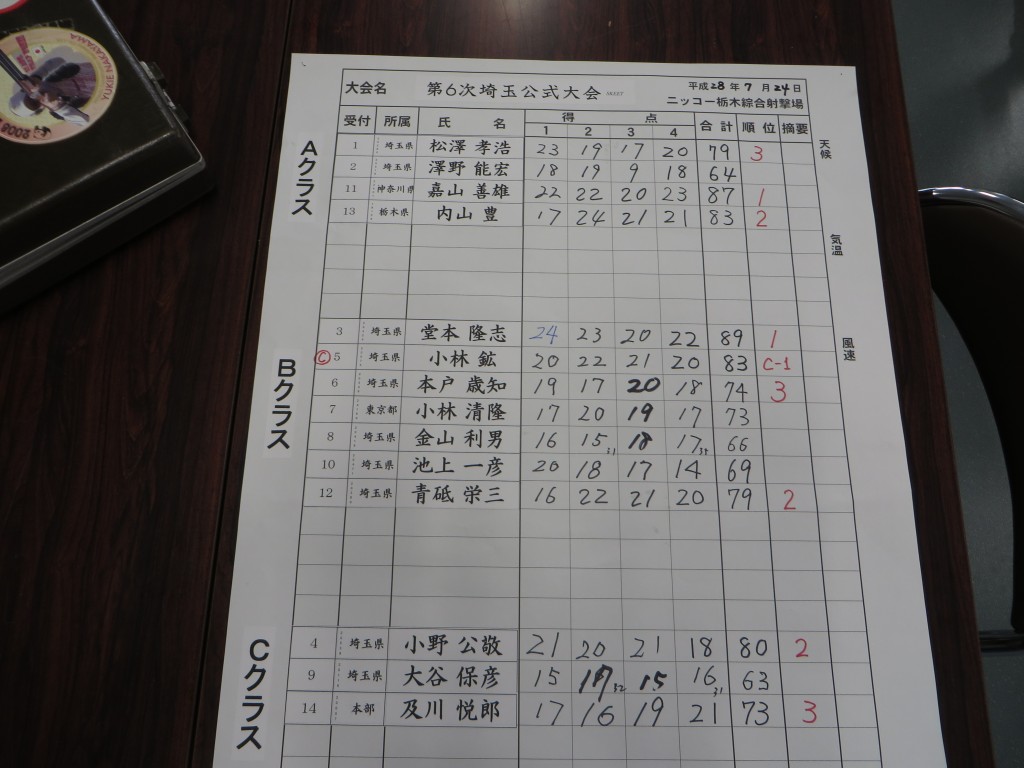 YUKIE NAKAYAMA
2008
大会名 第6次埼玉公式大会 SKEET 平成28年7月24日
ニッコー栃木綜合射撃場
受付 所属 氏名 得点 合計 順位 摘要
1 2 3 4
天候
気温
風速
Aクラス
1 埼玉県 松澤 孝浩 23 19 17 20 79 3
2 埼玉県 澤野 能宏 18 19 9 18 64
11 神奈川県 嘉山 善雄 22 22 20 23 87 1
13 栃木県 内山 豊 17 24 21 21 83 2
Bクラス
3 埼玉県 堂本 隆志 24 23 20 22 89 1
Ⓒ 5 埼玉県 小林 鉱 20 22 21 20 83 C-1
6 埼玉県 本戸 歳知 19 17 20 18 74 3
7 東京都 小林 清隆 17 20 19 17 73
8 埼玉県 金山 利男 16 15 18 17 66
10 埼玉県 池上 一彦 20 18 17 14 69
12 埼玉県 青砥 栄三 16 22 21 20 79 2
Cクラス
4 埼玉県 小野 公敬 21 20 21 18 80 2
9 埼玉県 大谷 保彦 15 17 15 16 63
14 本部 及川 悦郎 17 16 19 21 73 3